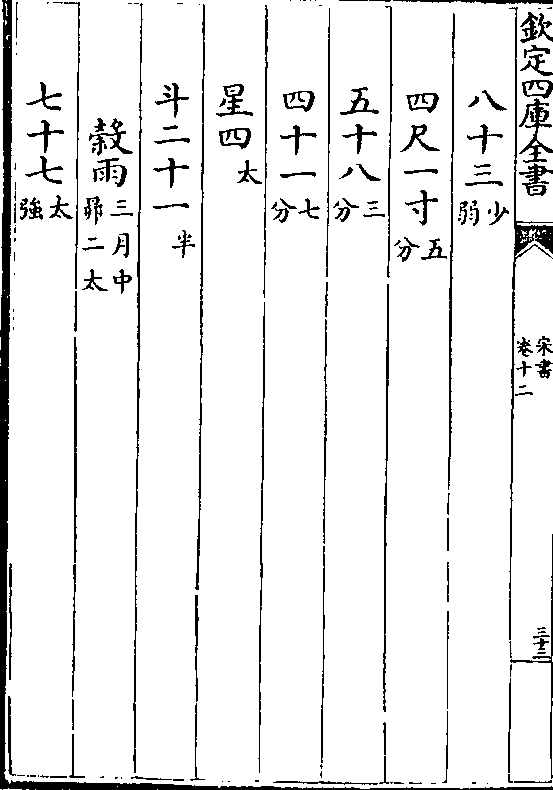 欽定四庫全書
宋書
卷十二
八十三少弱
四尺一寸五分
五十八三分
四十一七分
星四太
斗二十一半
穀雨三月中昴二太
七十七太強